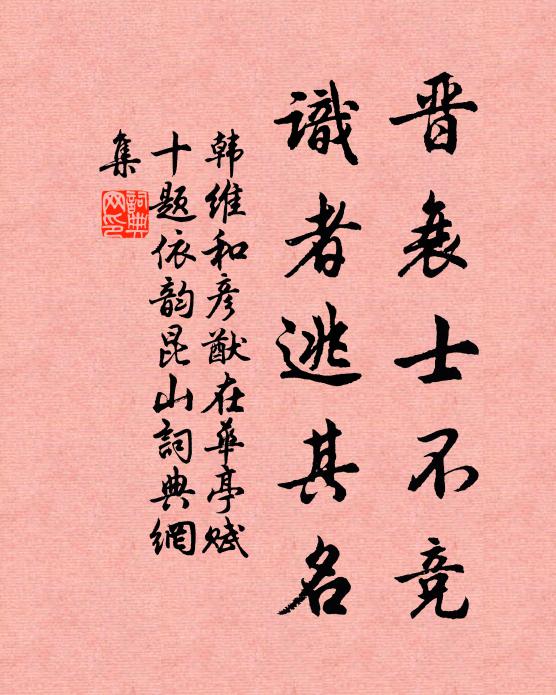 晋衰士不竞
識者逃其名
韩维和彦猷在华亭赋
十题依韵昆山詞典網
集
詞典網印